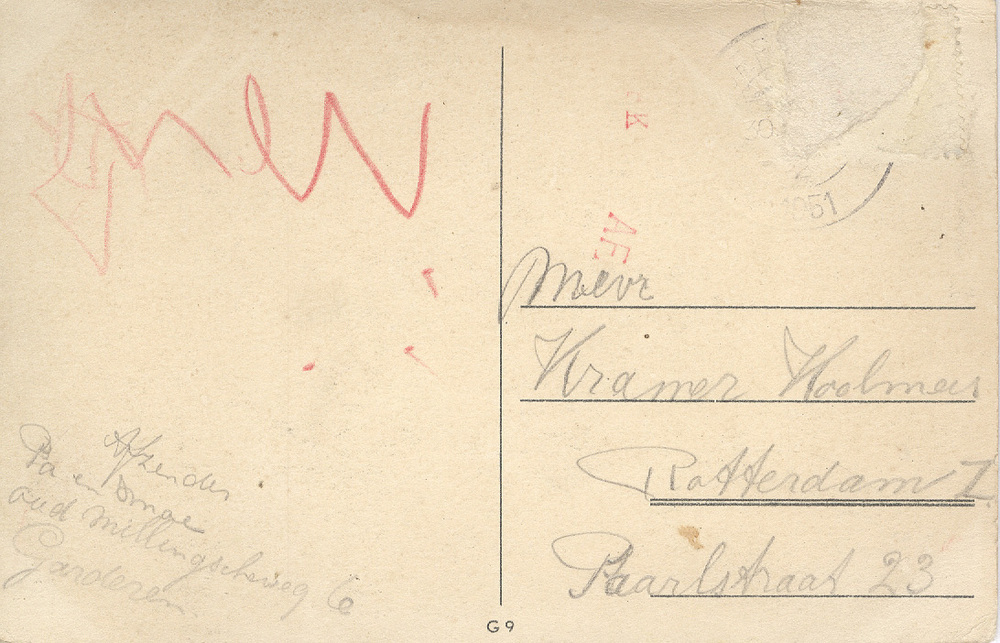 Afzender
Pa en Omoe
oud Millingscheweg 6
Garderen
K
AE
1951
Mevr
Kramer Koolmees
Rotterdam Z
Paarlstraat 23
G9